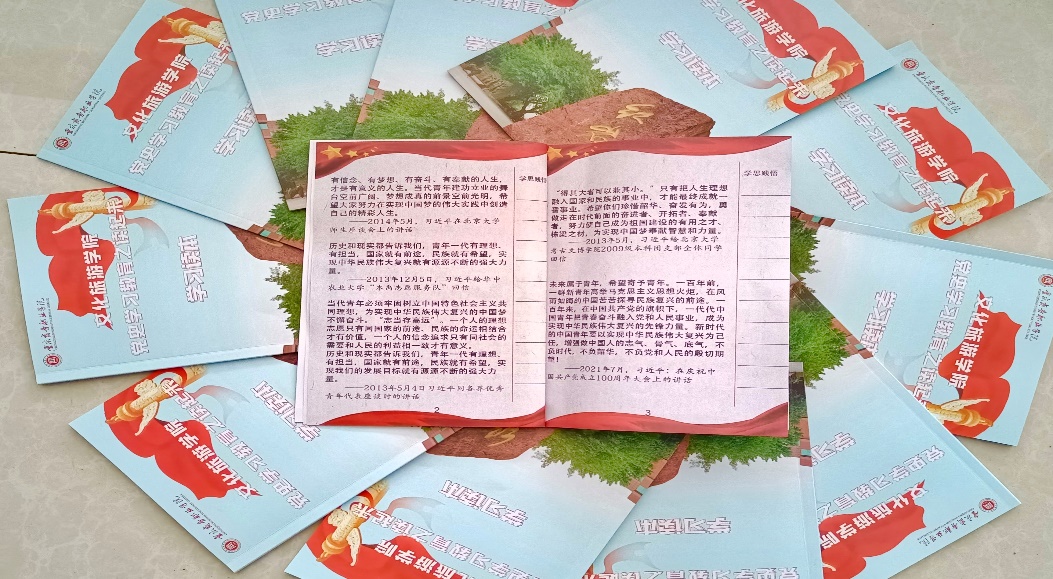 有信念、有梦想、有奋斗、有奉献的人生，
才是有意义的人生。当代青年建功立业的舞
台空前广阔、梦想成真的前景空前光明，希
望大家努力在实现中国梦的伟大实践中创造
自己的精彩人生。
——2014年5月，习近平在北京大学
师生座谈会上的讲话
历史和现实都告诉我们，青年一代有理想、
有担当，国家就有前途，民族就有希望，实
现中华民族伟大复兴就有源源不断的强大力
量。
——2013年12月5日，习近平给华中
农业大学“本禹志愿服务队”回信
当代青年必须牢固树立中国特色社会主义共
同理想，为实现中华民族伟大复兴的中国梦
不懈奋斗。“志当存高远”。一个人的理想
志愿只有同国家的前途、民族的命运相结合
才有价值，一个人的信念追求只有同社会的
需要和人民的利益相一致才有意义。
历史和现实都告诉我们，青年一代有理想、
有担当，国家就有前途，民族就有希望，实
现我们的发展目标就有源源不断的强大力
量。
——2013年5月4日习近平同各界优秀
青年代表座谈时的讲话
学思践悟
2
“得其大者可以兼其小。”只有把人生理想
融入国家和民族的事业中，才能最终成就一
番事业。希望你们珍惜韶华、奋发有为，勇
做走在时代前面的奋进者、开拓者、奉献
者，努力使自己成为祖国建设的有用之才、
栋梁之材，为实现中国梦奉献智慧和力量。
——2013年5月，习近平给北京大学
考古文博学院2009级本科团支部全体同学
回信
未来属于青年，希望寄予青年。一百年前，
一群新青年高举马克思主义思想火炬，在风
雨如晦的中国苦苦探寻民族复兴的前途。一
百年来，在中国共产党的旗帜下，一代代中
国青年把青春奋斗融入党和人民事业，成为
实现中华民族伟大复兴的先锋力量。新时代
的中国青年要以实现中华民族伟大复兴为己
任，增强做中国人的志气、骨气、底气，不
负时代，不负韶华，不负党和人民的殷切期
望！
——2021年7月，习近平：在庆祝中
国共产党成立100周年大会上的讲话
学思践悟
3
文化旅游学院
党史学习教育之
学习读本
文化旅游学院
党史学习教育之
学习读本
文化旅游学院
党史学习教育之
学习读本
文化旅游学院
党史学习教育之
学习读本
文化旅游学院
党史学习教育之
学习读本